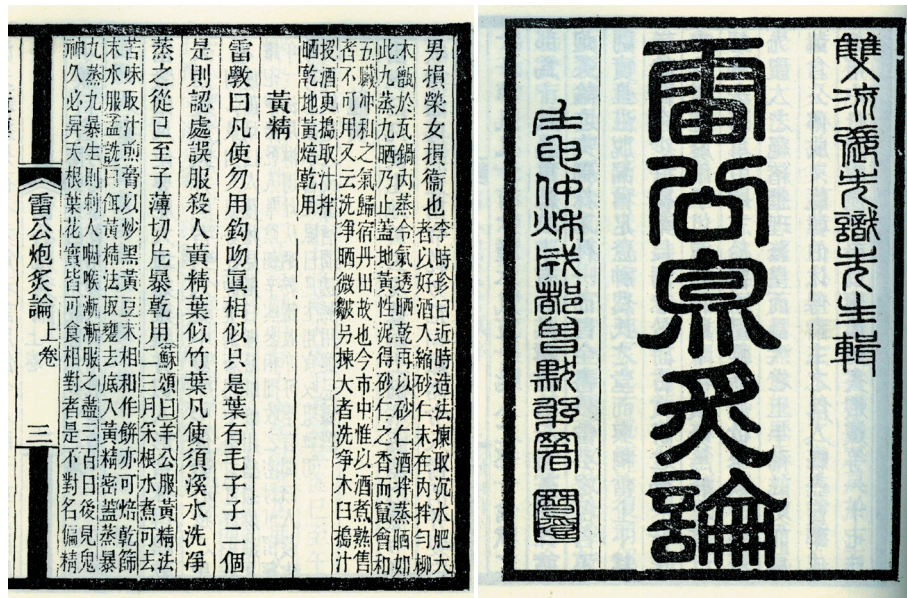 雙流張先識先生輯
雷公炮炙論
壬申仲秋成都曾默躬署
男損榮女損衞也
李時珍曰近時造法揀取沉水肥大
者以好酒入縮砂仁末在內拌勻柳
木甑於瓦鍋內蒸令氣透晒乾再以砂仁酒拌蒸晒如
此九蒸九晒乃止蓋地黃性泥得砂仁之香而竄會和
五臟冲和之氣歸宿丹田故也今市中惟以酒煮熟售
者不可用又云洗凈晒微皺另揀大者洗凈木臼搗汁
投酒更搗取汁拌
晒乾地黃焙乾用
黃精
雷斆曰凡使勿用鈎吻眞相似只是葉有毛子子二個
是則認處誤服殺人黃精葉似竹葉凡使須溪水洗凈
蒸之從巳至子薄切片暴乾用
蘇頌曰羊公服黃精法
二三月采根水煮可去
苦味取汁煎膏以炒黑黃豆末相和作餅亦可焙乾篩
末水服孟詵曰餌黃精法取甕去底入黃精密蓋蒸暴
九蒸九暴生則刺人咽喉漸漸服之盡三百日後見鬼
神久必昇天根葉花實皆可食相對者是不對名偏精
雷公炮炙論 上卷 三